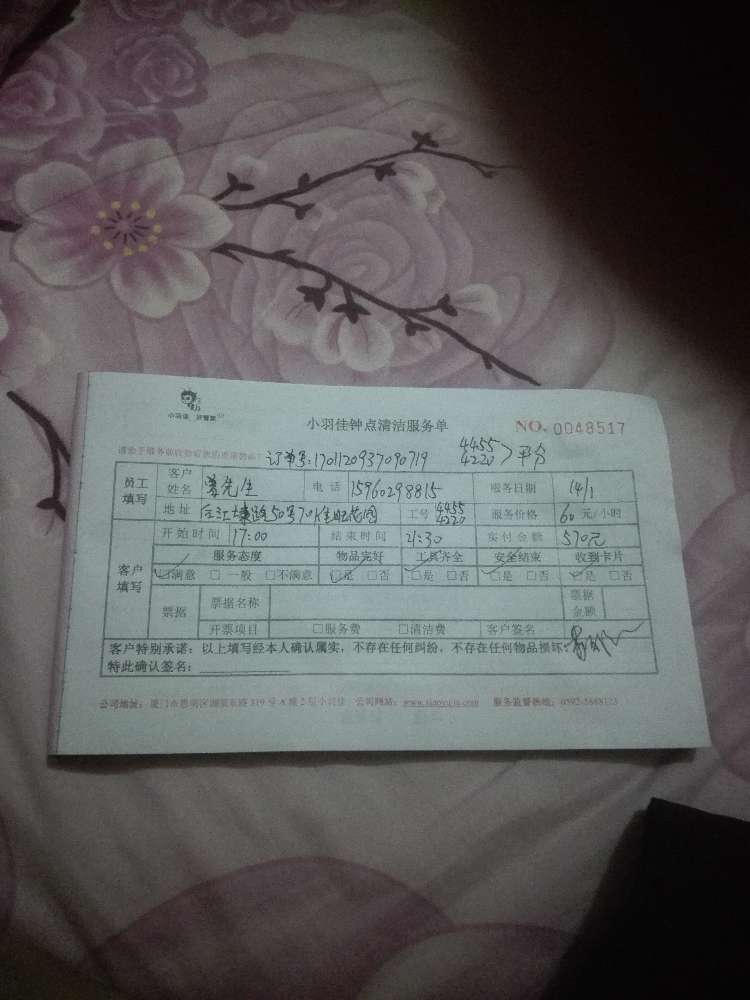 小羽佳 好管家
小羽佳钟点清洁服务单 NO. 0048517
订单号:1701120937090719 4455 4220 >平分
员工填写 客户姓名 先生 电话 15960298815 服务日期 14/1
地址 50号 工号 4455 4220 服务价格 60 元/小时
客户填写 开始时间 17:00 结束时间 21:30 实付金额 570元
服务态度 物品完好 工具齐全 安全结束 收到卡片
☑满意 □一般 □不满意 ☑是 □否 ☑是 □否 ☑是 □否 ☑是 □否
票据 票据名称 票据金额
开票项目 □服务费 □清洁费 客户签名
客户特别承诺：以上填写经本人确认属实，不存在任何纠纷，不存在任何物品损坏.
特此确认签名：
公司地址：厦门市思明区湖滨东路319号A幢2层小羽佳 公司网站：www.xiaoyujia.com 服务监督热线：0592-5888123